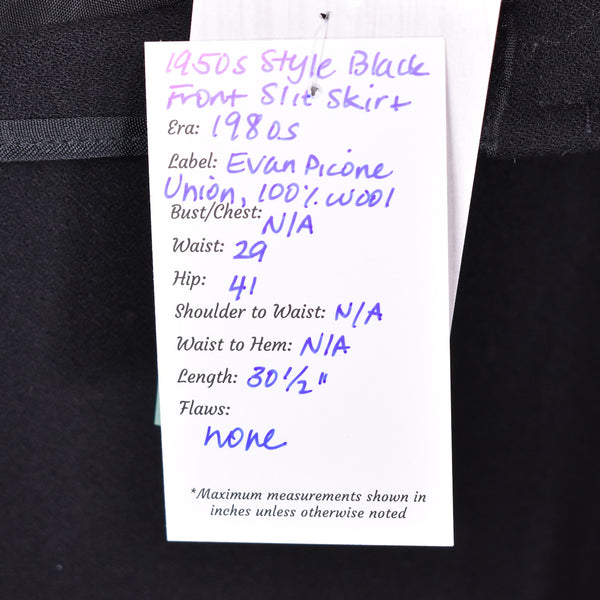 1950s Style Black
Front Slit Skirt
Era: 1980s
Label: Evan Picone
Union, 100% wool
Bust/Chest: N/A
Waist: 29
Hip: 41
Shoulder to Waist: N/A
Waist to Hem: N/A
Length: 30 1/2"
Flaws:
none
*Maximum measurements shown in
inches unless otherwise noted